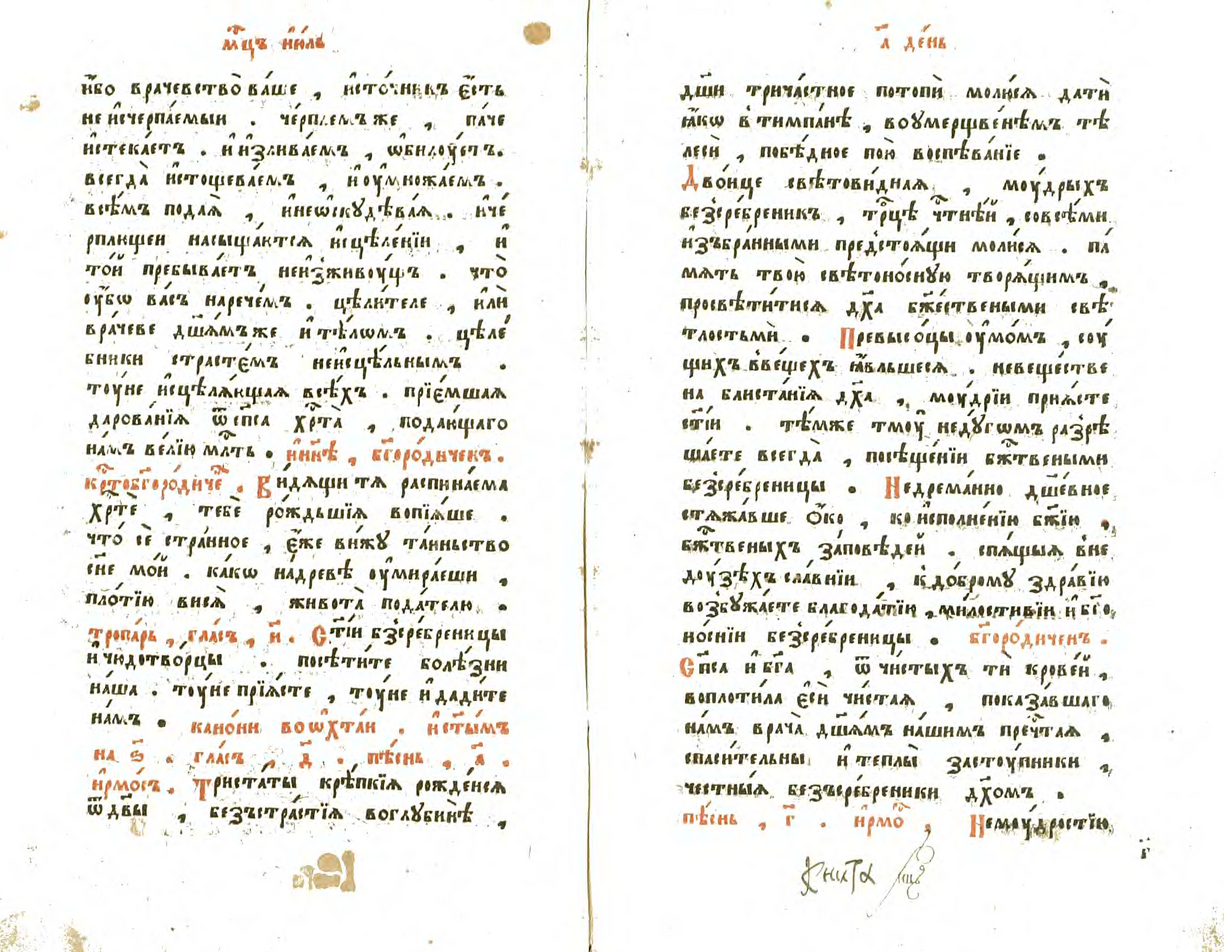 мⷭ҇цъ и҆ю́ль
и҆́бо врачевство̀ ва́ше , и҆сто́чникъ є҆́сть
не и҆счерпа́емыи . че́рплемъ же , па́че
и҆стека́етъ . и҆ и҆злива́емъ , ѡ҆били́ꙋетъ.
всегда̀ и҆стощева́емъ , и҆ оу҆множа́емъ .
всѣ́мъ пода́ꙗ , и҆ неѡскꙋдѣва́ꙗ . и҆ че́
рплющеи насыща́ютсѧ и҆сцѣле́нїи , и҆
то́и пребыва́етъ неизживоу́щъ . что̀
оу҆́бѡ ва́съ нарече́мъ . цѣли́теле , и҆лѝ
враче́ве дш҃а́мъ же и҆ тѣлѡ́мъ . цѣле́
бники страсте́мъ неисцѣ́льнымъ .
тоу́не и҆сцѣлѧ́ющаѧ всѣ́хъ . прїе́мшаѧ
дарова́нїѧ ѿ сп҃са хрⷭ҇та̀ , подаю́щаго
на́мъ ве́лїю млⷭ҇ть . и҆ нн҃ѣ , бг҃оро́диченъ .
крⷭ҇тобг҃оро́диче . Ви́дѧщи тѧ распина́ема
хрⷭ҇тѐ , тебѐ ро́ждьшїѧ вопїѧ́ше .
что̀ сѐ стра́нное , є҆́же ви́жꙋ та́иньство
сн҃е мо́и . ка́кѡ на́древѣ оу҆мира́еши ,
пло́тїю висѧ̀ , живота̀ пода́телю .
тропа́рь , гла́съ , и҃ . Ст҃і́и безсре́бреницы
и҆ чюдотво́рцы . посѣти́те болѣ́зни
на́ша . тоу́не прїѧ́сте , тоу́не и҆ дади́те
на́мъ . кано́ни во ѻ҆хта́и . и҆ ст҃ы́мъ
на ѕ҃ . гла́съ , д҃ . пѣ́снь , а҃ .
и҆рмо́съ . Триста́ты крѣ́пкїѧ рожде́исѧ
ѿ дв҃ы , безъстра́стїѧ воглꙋбинѣ̀ ,
а҃ де́нь
дш҃и трича́стное потопѝ молю́сѧ да́ти
ꙗ҆́кѡ в тѷмпа́нѣ , во оумерщвене́мъ тѣ
лесѝ , побѣ́дное пою̀ воспѣва́нїе .
Дво́ице свѣтови́днаѧ , моу́дрыхъ
безсре́бреникъ , трⷪ҇цѣ чⷭ҇тнѣ́и , совсѣ́ми
и҆зъбра́нными предстоѧ́щи моли́сѧ . па́
мѧть твою̀ свѣтоно́снꙋю творѧ́щимъ ,
просвѣти́тисѧ дх҃а бж҃е́ствеными свѣ́
тлостьми . Превысо́цы оу҆мо́мъ , соу́
щихъ вве́щехъ ꙗ҆́вльшесѧ . невеще́стве
на блиста́нїѧ дх҃а , моу́дрїи прїѧ́сте
ст҃і́и . тѣ́мже тмоу̀ недꙋ́гѡмъ разрѣ
ша́ете всегда̀ , посѣще́нїи бжⷭ҇твеными
безсре́бреницы . Недрема́нно дш҃е́вное
стѧжа́вше ѻ҆́ко , ко и҆сполне́нїю бж҃їю ,
бжⷭ҇твеныхъ за́повѣдей . спѧ́щыѧ вне
доу́зѣхъ сла́внїи , к до́бромꙋ здра́вїю
возбꙋжа́ете благода́тїю , ми́лостивїи и҆ бг҃о
но́снїи безсре́бреницы . бг҃оро́диченъ .
Сп҃са и҆ бг҃а , ѿ чи́стыхъ ти̏ крове́и ,
воплоти́ла є҆сѝ чи́стаѧ , показа́вшаго
на́мъ врача̀ дш҃а́мъ на́шимъ пречⷭ҇таѧ ,
спаси́тельны и҆ те́плы засто́упники ,
че́стныѧ безъсре́бреники дх҃омъ .
пѣ́снь , г҃ . и҆рмо́ , Немоу́дростїю
г҃
Книга